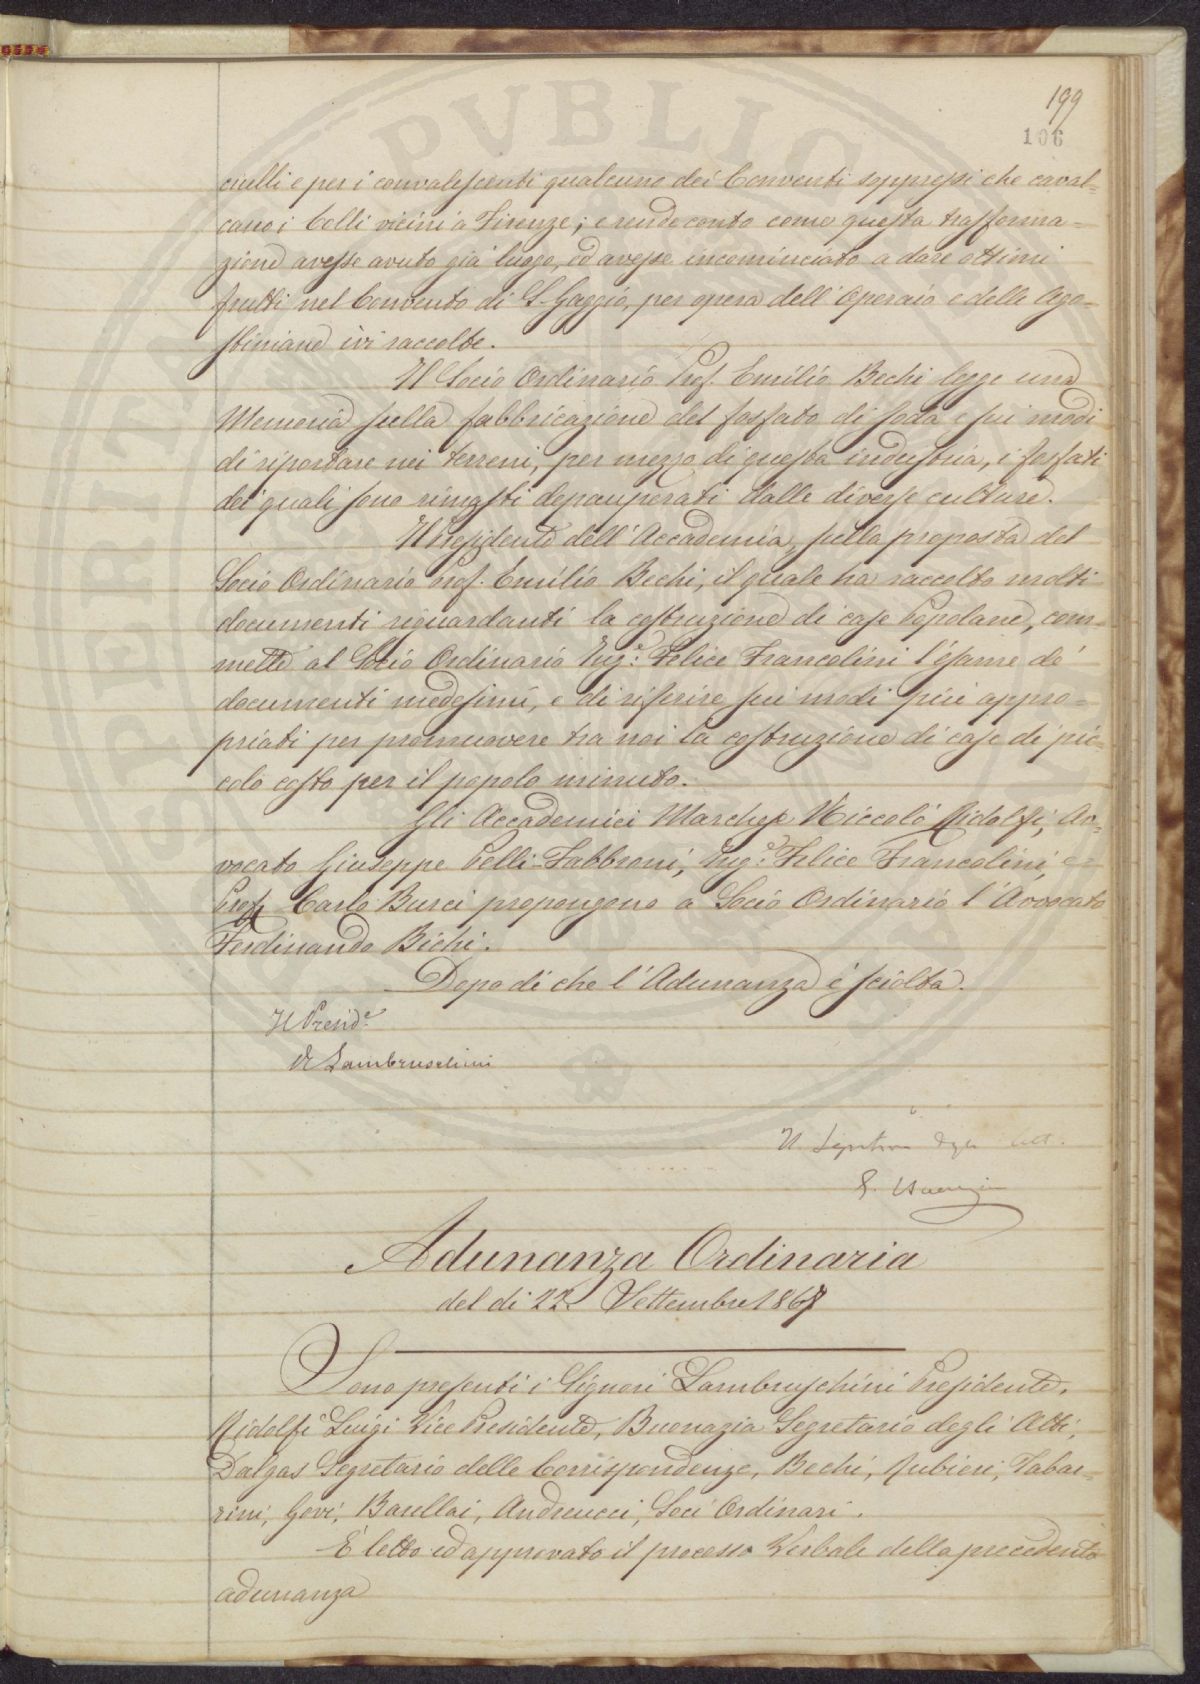 199
106
ciulli e per i convalescenti qualcuno dei Conventi soppressi che caval=
cano i Colli vicini a Firenze; e rende conto come questa trasforma=
zione avesse avuto già luogo, ed avesse incominciato a dare ottimi
frutti nel Convento di S. Gaggio, per opera dell'Operaio e delle Ago=
stiniane ivi raccolte.
Il Socio Ordinario Prof. Emilio Bechi legge una
Memoria sulla fabbricazione del fosfato di soda e sui modi
di riportare nei terreni, per mezzo di questa industria, i fosfati
dei quali sono rimasti depauperati dalle diverse culture.
Il Presidente dell'Accademia, sulla proposta del
Socio Ordinario Prof. Emilio Bechi, il quale ha raccolto molti
documenti riguardanti la costruzione di case Popolane, com=
mette al Socio Ordinario Ing.e Felice Francolini l'esame de'
documenti medesimi, e di riferire sui modi più appro=
priati per promuovere tra noi la costruzione di case di pic=
colo costo per il popolo minuto.
Gli Accademici Marchese Niccolò Ridolfi, Av=
vocato Giuseppe Pelli-Fabbroni, Ing.e Felice Francolini, e
Prof. Carlo Burci propongono a Socio Ordinario l'Avvocato
Ferdinando Bichi.
Dopo di che l'Adunanza è sciolta.
Il Presid.e
R Lambruschini
Il Segretario degli Atti.
Adunanza Ordinaria
del di 22 Settembre 1867
Sono presenti i Signori Lambruschini Presidente,
Ridolfi Luigi Vice Presidente, Buonazia Segretario degli Atti,
Dalgas Segretario delle Corrispondenze, Bechi, Rubieri, Tabar=
rini, Govi, Barellai, Andreucci, Soci Ordinari.
È letto ed approvato il processo Verbale della precedente
adunanza